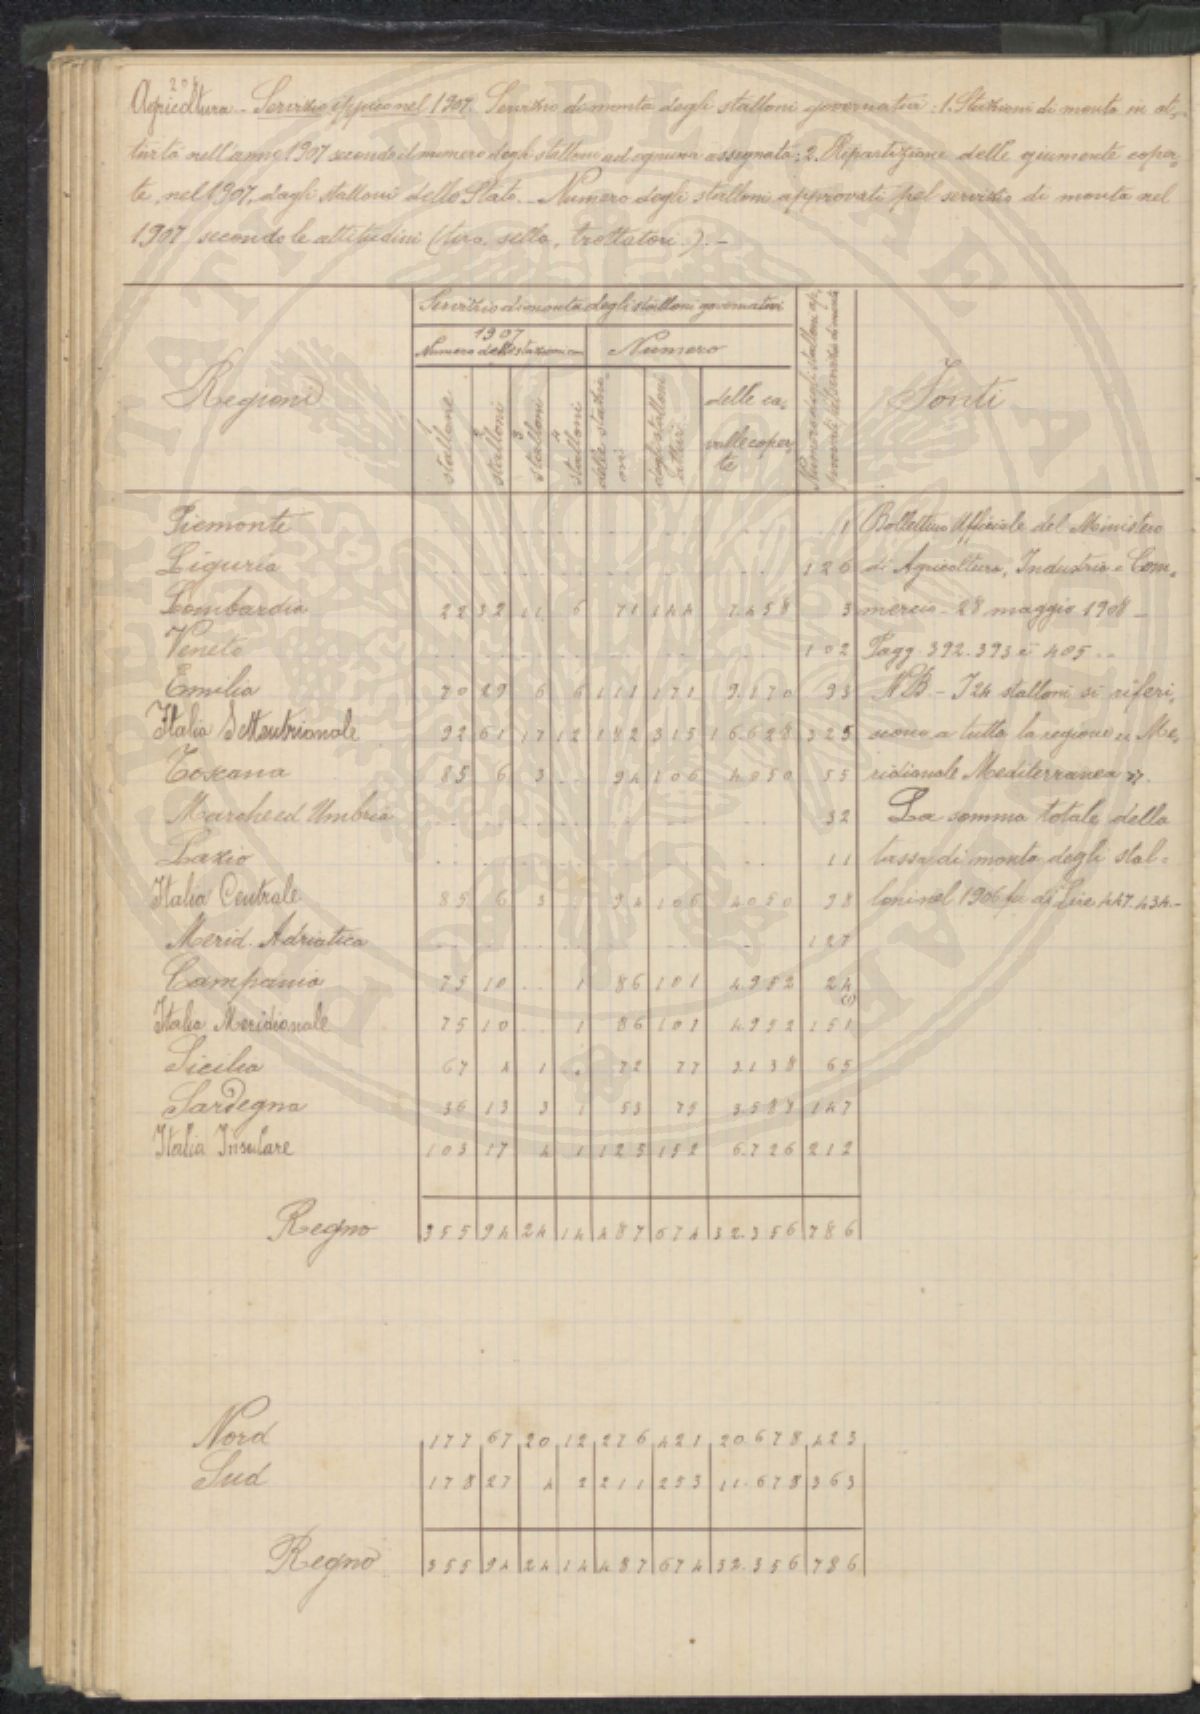 20
Agricoltura - Servizio ippico nel 1907. Servizio di monta degli stalloni governativi: 1. Stazioni di monta in at-
tività nell'anno 1907 secondo il numero degli stalloni ad ognuna assegnati; 2. Ripartizione delle giumente coper-
te, nel 1907, dagli stalloni dello Stato. - Numero degli stalloni approvati pel servizio di monta nel
1907 secondo le attitudini (tiro, sella, trottatori). -
Servizio di monta degli stalloni governativi
1907
Numero delle stazioni con
Numero
Regioni
1 stallone
2 stalloni
3 stalloni
4 stalloni
delle stazioni
degli stalloni attivi
delle ca-
valle coper-
te
Numero degli stalloni ap-
provati pel servizio di monta
Fonti
Piemonte . . . . . . . 1 Bollettino Ufficiale del Ministero
Liguria . . . . . . . 126 di Agricoltura, Industria e Com-
Lombardia 22 32 11 6 71 144 7.458 3 mercio - 28 maggio 1908 -
Veneto . . . . . . . 102 Pagg. 392.393 e 405 . -
Emilia 70 29 6 6 111 171 9.170 93 NB - I 24 stalloni si riferi-
Italia Settentrionale 92 61 17 12 182 315 16.628 325 scono a tutta la regione "Me-
Toscana 85 6 3 . 94 106 4050 55 ridionale Mediterranea".
Marche ed Umbria . . . . . . . 32 La somma totale della
Lazio . . . . . . . 11 tassa di monta degli stal-
Italia Centrale 85 6 3 . 94 106 4050 98 loni nel 1906 fu di Lire 447.434 -
Merid. Adriatica . . . . . . . 127
Campania 75 10 . 1 86 101 4.952 24
(1)
Italia Meridionale 75 10 . 1 86 101 4.952 151
Sicilia 67 4 1 . 72 77 3138 65
Sardegna 36 13 3 1 53 75 3.588 147
Italia Insulare 103 17 4 1 125 152 6.726 212
Regno 355 94 24 14 487 674 32.356 786
Nord 177 67 20 12 276 421 20.678 423
Sud 178 27 4 2 211 253 11.678 363
Regno 355 94 24 14 487 674 32.356 786